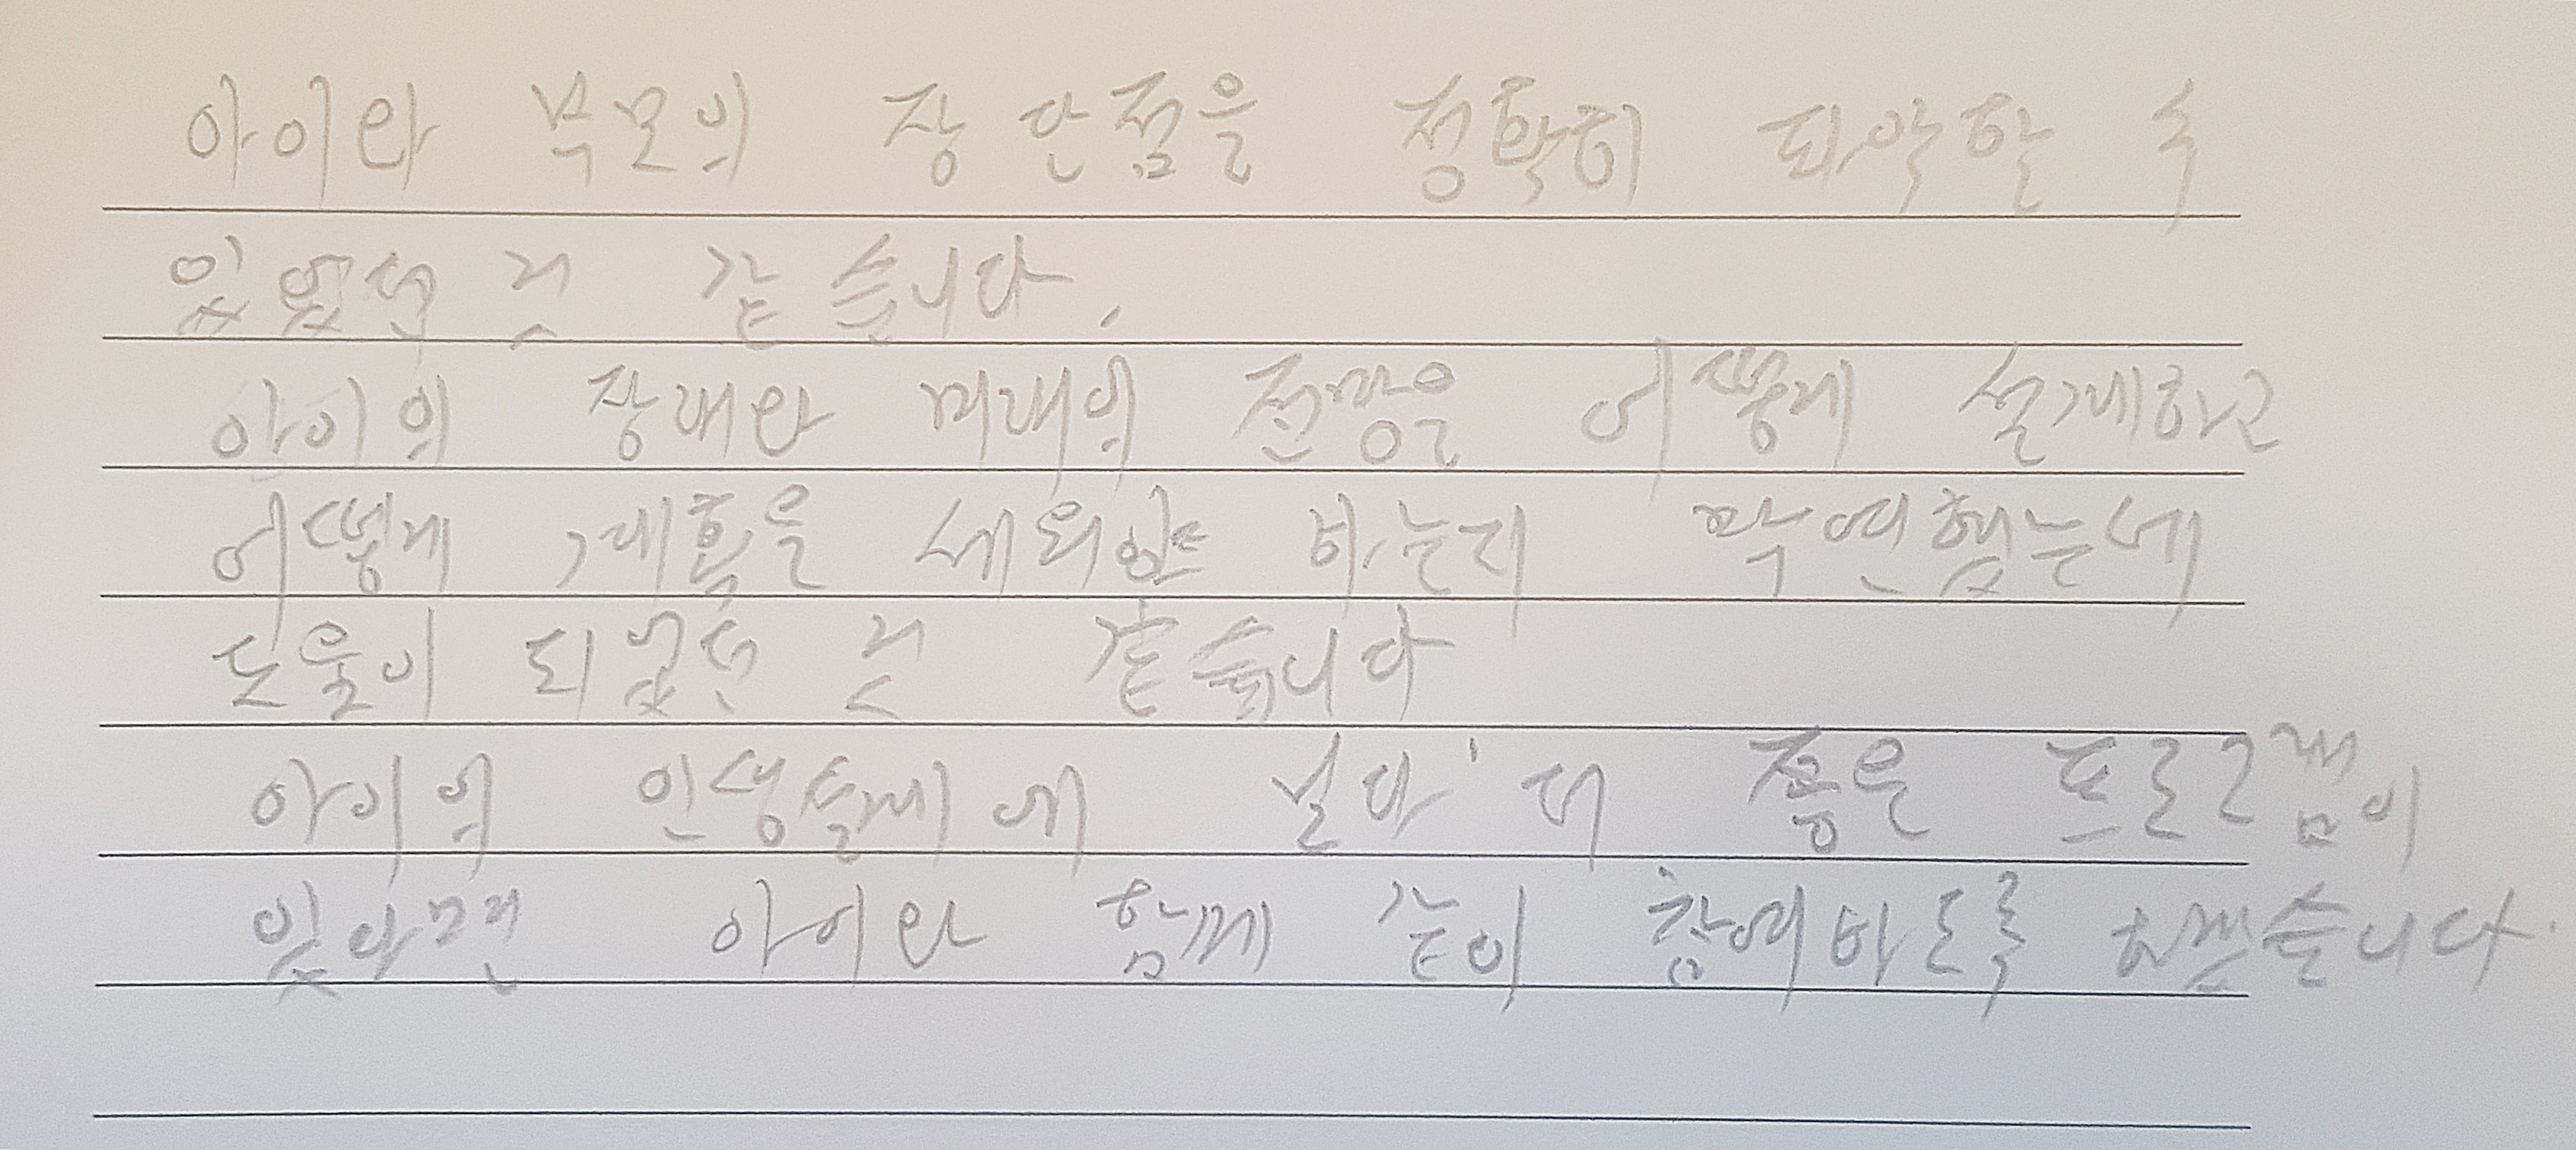 아이와 부모의 장 단점을 정확히 파악할 수
있었던 것 같습니다.
아이의 장래와 미래의 전망을 어떻게 설계하고
어떻게 계획을 세워야 하는지 막연했는데
도움이 되었던 것 같습니다
아이의 인생설계에 날마다 더 좋은 프로그램이
있다면 아이와 함께 같이 참여하도록 하겠습니다.